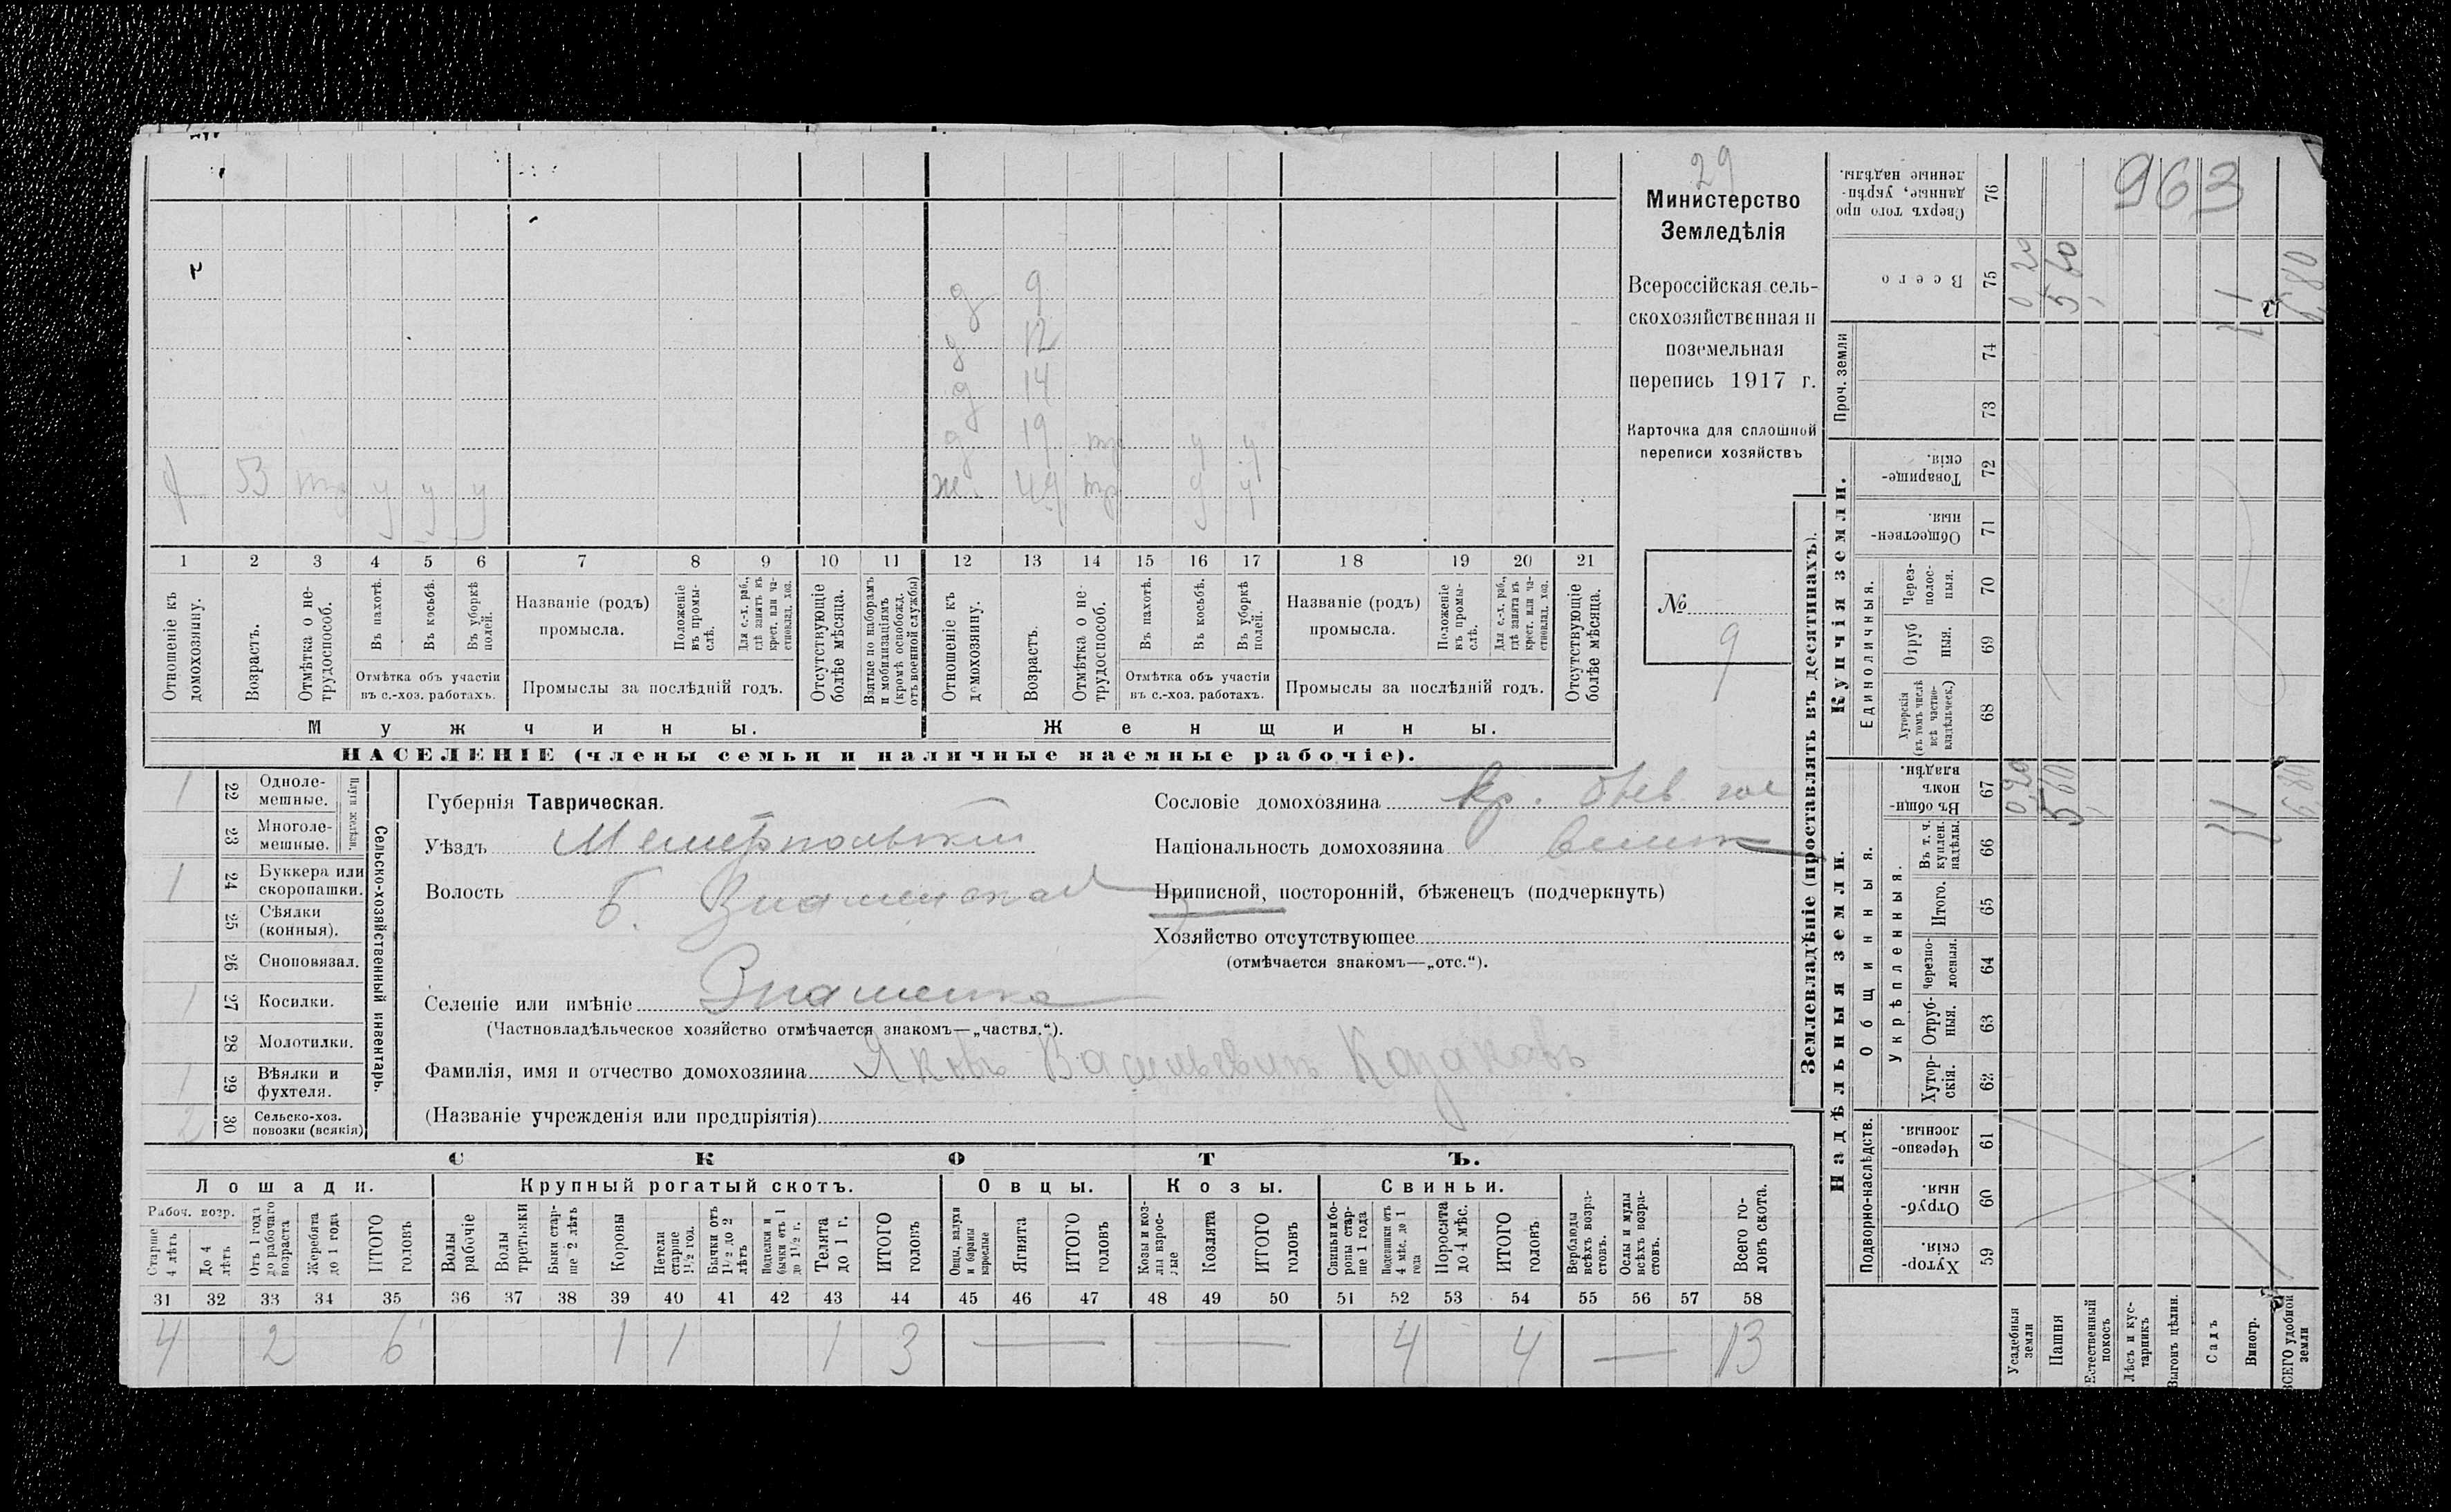 29
Министерство
Земледѣлія
Всероссійская сель-
скохозяйственная и
поземельная
перепись 1917 г.
Карточка для сплошной
переписи хозяйствъ
№
9
963
д 9
д 12
д 14
д 19 тр у у
53 тр у у у
ж 49 тр у у
1 2 3 4 5 6 7 8 9 10 11 12 13 14 15 16 17 18 19 20 21
Отношеніе къ домохозяину.
Возрастъ.
Отмѣтка о не-трудоспособ.
Въ пахотѣ.
Въ косьбѣ.
Въ уборкѣ полей.
Отмѣтка объ участіи
въ с.-хоз. работахъ.
Названіе (родъ)
промысла.
Положеніе въ промы-слѣ.
Для с.-х. раб., гдѣ занятъ въ крест. или ча-стновлад. хоз.
Промыслы за послѣдній годъ.
Отсутствующіе болѣе мѣсяца.
Взятые по наборамъ и мобилизаціямъ (кромѣ освобожд. отъ военной службы)
Отношеніе къ домохозяину.
Возрастъ.
Отмѣтка о не-трудоспособ.
Въ пахотѣ.
Въ косьбѣ.
Въ уборкѣ полей.
Отмѣтка объ участіи
въ с.-хоз. работахъ.
Названіе (родъ)
промысла.
Положеніе въ промы-слѣ.
Для с.-х. раб., гдѣ занята въ крест. или ча-стновлад. хоз.
Промыслы за послѣдній годъ.
Отсутствующіе болѣе мѣсяца.
Мужчины.
Женщины.
НАСЕЛЕНІЕ (члены семьи и наличные наемные рабочіе).
1 22 Одноле-мешные.
23 Многоле-мешные.
Плуги желѣзн.
1 24 Буккера или скоропашки.
25 Сѣялки (конныя).
26 Сноповязал.
1 27 Косилки.
28 Молотилки.
1 29 Вѣялки и фухтеля.
2 30 Сельско-хоз. повозки (всякія)
Сельско-хозяйственный инвентарь.
Губернія Таврическая.
Уѣздъ Мелитопольскій
Волость Б. Знаменская
Селеніе или имѣніе Знаменка
(Частновладѣльческое хозяйство отмѣчается знакомъ—„частвл.“).
Фамилія, имя и отчество домохозяина Яковъ Васильевичъ Козаковъ
(Названіе учрежденія или предпріятія)
Сословіе домохозяина кр.
Національность домохозяина
Приписной, посторонній, бѣженецъ (подчеркнуть)
Хозяйство отсутствующее
(отмѣчается знакомъ—„отс.“).
СКОТЪ.
Лошади.
Крупный рогатый скотъ.
Овцы.
Козы.
Свиньи.
Рабоч. возр.
Старше 4 лѣтъ
До 4 лѣтъ
Отъ 1 года до рабочаго возраста
Жеребята до 1 года
ИТОГО головъ
Волы рабочіе
Волы третьяки
Быки стар-ше 2 лѣтъ
Коровы
Нетели старше 1½ год.
Бычки отъ 1½ до 2 лѣтъ
Подтелки и бычки отъ 1 до 1½ г.
Телята до 1 г.
ИТОГО головъ
Овцы, валухи и бараны взрослые
Ягнята
ИТОГО головъ
Козы и коз-лы взрос-лые
Козлята
ИТОГО головъ
Свиньи и бо-ровы стар-ше 1 года
Подсвинки отъ 4 мѣс. до 1 года
Поросята до 4 мѣс.
ИТОГО головъ
Верблюды всѣхъ возра-стовъ.
Ослы и мулы всѣхъ возра-стовъ.
Всего го-ловъ скота.
31 32 33 34 35 36 37 38 39 40 41 42 43 44 45 46 47 48 49 50 51 52 53 54 55 56 57 58
4 2 6 1 1 1 3 — — 4 4 — 13
Землевладѣніе (проставлять въ десятинахъ).
Надѣльныя земли.
Купчія земли.
Проч. земли
Подворно-наслѣдств.
Общинныя.
Укрѣпленныя.
Единоличныя.
Сверхъ того про данные, укрѣп-ленные надѣлы. 76
Всего 75
74
73
Товарище-скія. 72
Обществен-ныя. 71
Через-полос-ныя. 70
Отруб ныя. 69
Хуторскія (въ томъ числѣ всѣ частно-владѣльческ.) 68
Въ общи-номъ владѣн. 67
Въ т. ч. куплен. надѣлы. 66
Итого. 65
Черезпо-лосныя. 64
Отруб-ныя. 63
Хутор-скія. 62
Черезпо-лосныя. 61
Отруб-ныя. 60
Хутор-скія. 59
Усадебныя земли
Пашня
Естественный покосъ
Лѣсъ и кус-тарникъ
Выгонъ цѣлин.
Садъ
Виногр.
ВСЕГО удобной земли
0,20
5,60
1
6,80
0,20
1
6,80